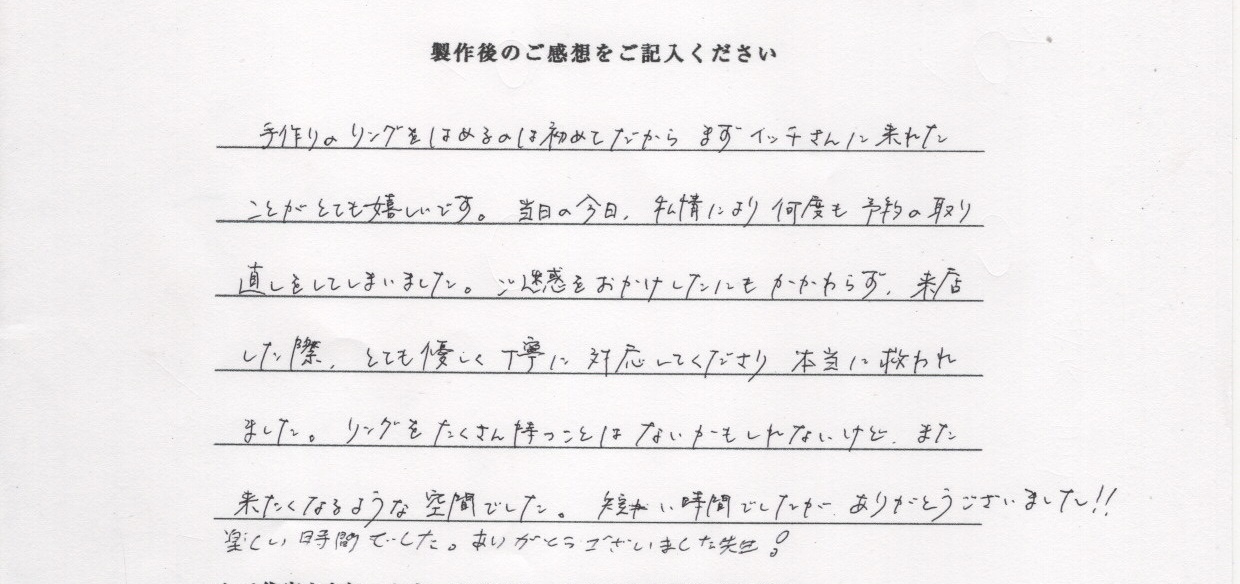 製作後のご感想をご記入ください
手作りのリングをはめるのは初めてだから まずイッチさんに来れた
ことがとても嬉しいです。当日の今日、私情により何度も予約の取り
直しをしてしまいました。ご迷惑をおかけしたにもかかわらず、来店
した際、とても優しく丁寧に対応してくださり本当に救われ
ました。リングをたくさん持つことはないかもしれないけど、また
来たくなるような空間でした。短い時間でしたが、ありがとうございました!!
楽しい時間でした。ありがとうございました先生!